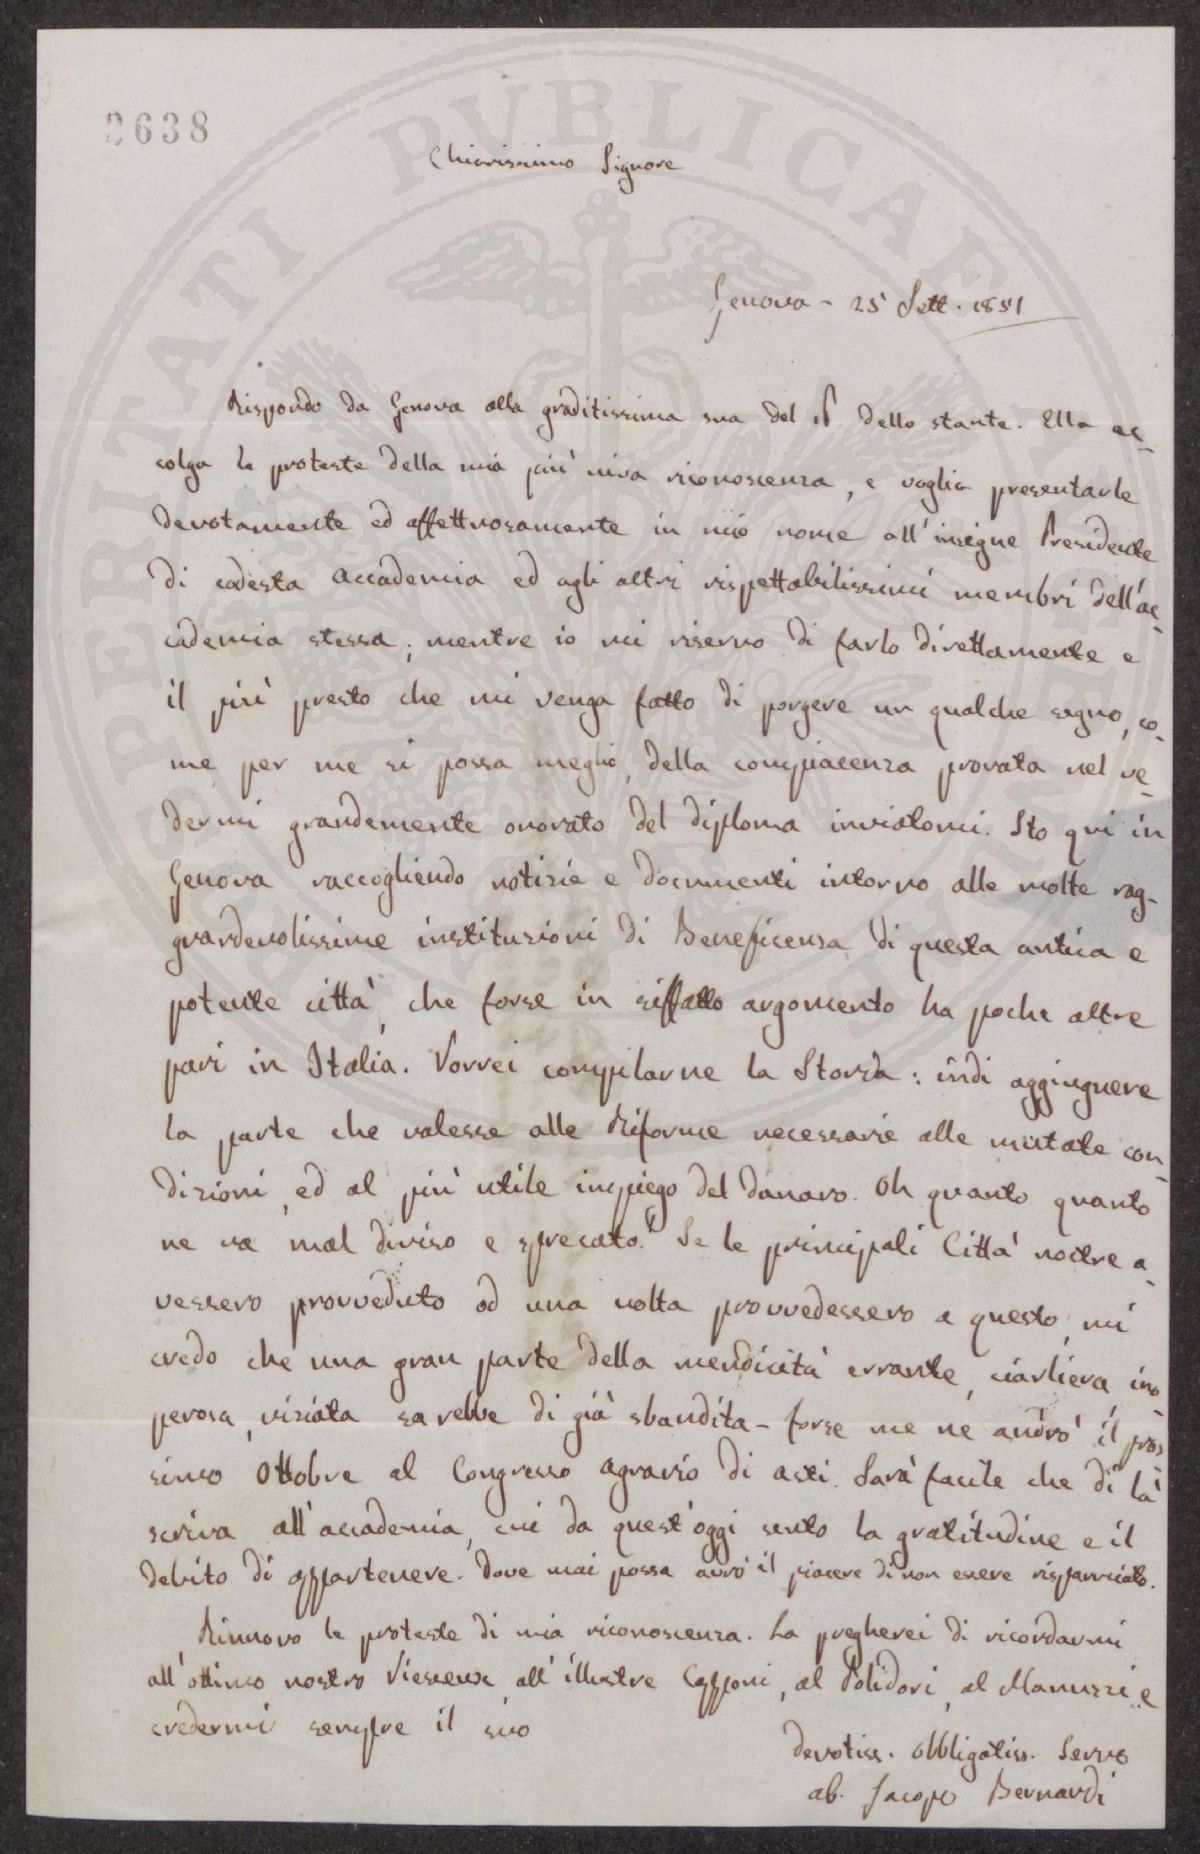 2638
Chiarissimo Signore
Genova - 25 Sett. 1851
Rispondo da Genova alla graditissima sua del dello stante. Ella ac-
colga le proteste della mia più viva riconoscenza, e voglia presentarle
devotamente ed affettuosamente in mio nome all'insigne Presidente
di codesta Accademia ed agli altri rispettabilissimi membri dell'ac-
cademia stessa; mentre io mi riservo di farlo direttamente e
il più presto che mi venga fatto di porgere un qualche segno, co-
me per me si possa meglio, della compiacenza provata nel ve-
dermi grandemente onorato del diploma inviatomi. Sto qui in
Genova raccogliendo notizie e documenti intorno alle molte rag-
guardevolissime instituzioni di Beneficenza di questa antica e
potente città, che forse in siffatto argomento ha poche altre
pari in Italia. Vorrei compilarne la Storia: indi aggiugnere
la parte che valesse alle Riforme necessarie alle mutate con-
dizioni, ed al più utile impiego del danaro. Oh quanto quanto
ne va mal diviso e sprecato! Se le principali Città nostre a-
vessero provveduto od una volta provvedessero a questo, mi
credo che una gran parte della mendicità errante, ciarliera ino-
perosa, viziata sarebbe di già sbandita - forse me ne andrò il pros-
simo Ottobre al Congresso agrario di Asti. Sarà facile che di là
scriva all'accademia, cui da quest'oggi sento la gratitudine e il
debito di appartenere. Dove mai possa avrò il piacere di non essere risparmiato.
Rinnovo le proteste di mia riconoscenza. La pregherei di ricordarmi
all'ottimo nostro Viesseux all'illustre Capponi, al Polidori, al Manuzzi e
credermi sempre il suo
devotiss. obbligatiss. Servo
ab. Jacopo Bernardi
PERITATI PUBLICAE